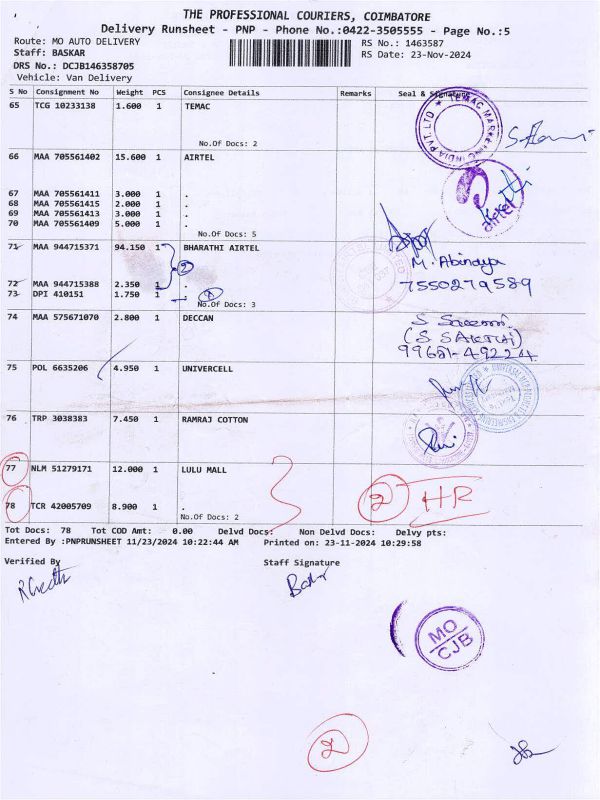 THE PROFESSIONAL COURIERS, COIMBATORE
Delivery Runsheet - PNP - Phone No.:0422-3505555 - Page No.:5
Route: MO AUTO DELIVERY
RS No.: 1463587
Staff: BASKAR
RS Date: 23-Nov-2024
DRS No.: DCJB146358705
Vehicle: Van Delivery
S No Consignment No Weight PCS Consignee Details Remarks Seal & Signature
65 TCG 10233138 1.600 1 TEMAC
No.Of Docs: 2
66 MAA 705561402 15.600 1 AIRTEL
67 MAA 705561411 3.000 1 .
68 MAA 705561415 2.000 1 .
69 MAA 705561413 3.000 1 .
70 MAA 705561409 5.000 1 .
No.Of Docs: 5
71 MAA 944715371 94.150 1 BHARATHI AIRTEL
M. Abinaya
72 MAA 944715388 2.350 1 .
7550279589
73 DPI 410151 1.750 1 .
No.Of Docs: 3
74 MAA 575671070 2.800 1 DECCAN
(S SAKTHI)
99651-49224
75 POL 6635206 4.950 1 UNIVERCELL
76 TRP 3038383 7.450 1 RAMRAJ COTTON
77 NLM 51279171 12.000 1 LULU MALL
2 HR
78 TCR 42005709 8.900 1 .
No.Of Docs: 2
Tot Docs: 78 Tot COD Amt: 0.00 Delvd Docs: Non Delvd Docs: Delvy pts:
Entered By :PNPRUNSHEET 11/23/2024 10:22:44 AM Printed on: 23-11-2024 10:29:58
Verified By Staff Signature
MO
CJB
2